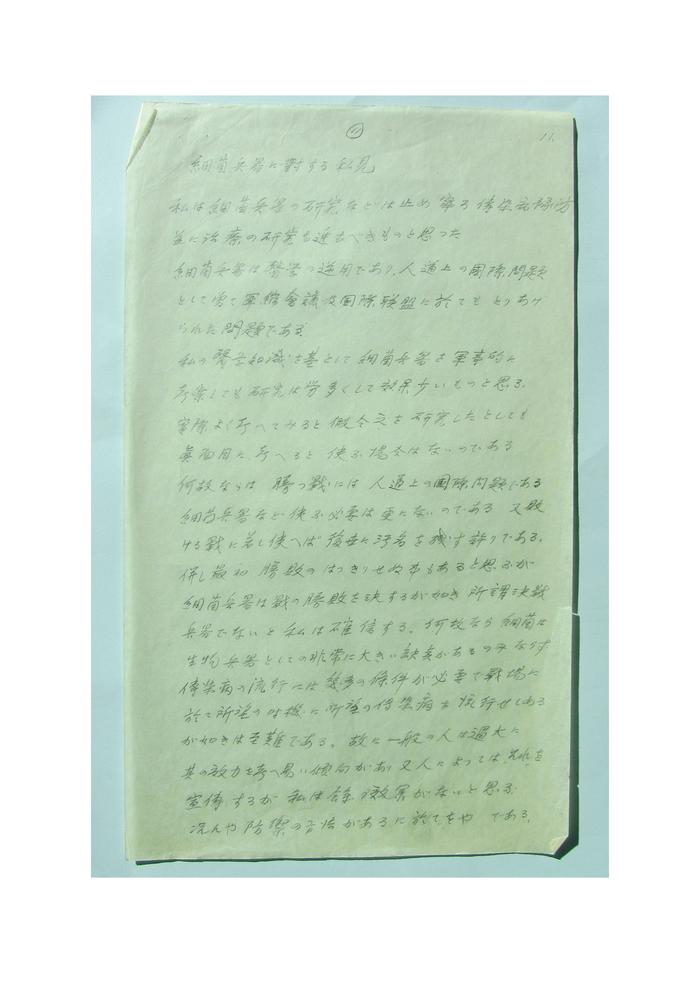 11 11.
細菌兵器に對する私見
私は細菌兵器の研究などは止め 寧ろ傳染病予防
並に治療の研究を進むべきものと思った
細菌兵器は醫学の逆用であり、人道上の国際問題
として曽て軍縮会議及国際聯盟に於ても とりあげ
られた問題である
私の醫学知識を基として細菌兵器を軍事的に
考案しても研究は労多くして效果少いものと思る。
實際よく考へてみると假令之を研究したとしても
眞面目に考へると使ふ場合はないのである
何故ならば 勝つ戰には人道上の国際問題である
細菌兵器など使ふ必要は更にないのである 又敗
ける戰に若し使へば後世に汚名を残す許りである。
併し最初 勝敗のはっきりせぬ する事もあると思ふが
細菌兵器は戰の勝敗を決するが如き所謂決戰
兵器でないと私は確信する。何故なら細菌は
生物兵器としての非常に大きい缺点があるのみならず
傳染病の流行には幾多の條件が必要で戰場に
於て所望の時機に所望の傳染病を流行せしある
が如きは至難である。故に一般の人は過大に
其の效力を考へ易い傾向があり 又人によっては其れを
宣傳するが 私は余り效果がないと思ふ
況んや防禦の方法があるに於てをや である。